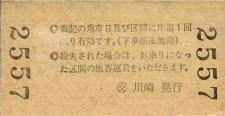 2557
◎表記の乗車日及び区間に片道1回
限り有効です。(下車前途無効)
◎紛失された場合は、お乗りになっ
た区間の旅客運賃をいただきます。
川崎 発行
2557